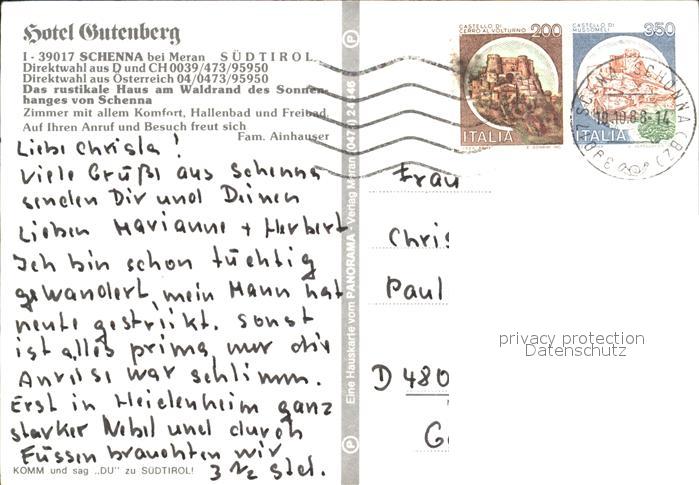 Hotel Gutenberg
I - 39017 SCHENNA bei Meran SÜDTIROL
Direktwahl aus D und CH 0039/473/95950
Direktwahl aus Österreich 04/0473/95950
Das rustikale Haus am Waldrand des Sonnen-
hanges von Schenna
Zimmer mit allem Komfort, Hallenbad und Freibad.
Auf Ihren Anruf und Besuch freut sich
Fam. Ainhauser
Liebe Christa!
Viele Grüße aus Schenna
senden Dir und Deinen
Lieben Marianne + Herbert
Ich bin schon tüchtig
gewandert, mein Mann hat
heute gestreikt. Sonst
ist alles prima, nur die
Anreise war schlimm.
Erst in Heidenheim ganz
starker Nebel und durch
Füssen brauchten wir
3 1/2 Std.
KOMM und sag „DU" zu SÜDTIROL!
Eine Hauskarte vom PANORAMA - Verlag Meran
CASTELLO DI
CERRO AL VOLTURNO
200
ITALIA
CASTELLO DI
MUSSOMELI
350
ITALIA
SCHENNA (BZ)
Frau
Chris
Paul
D 480
G
privacy protection
Datenschutz